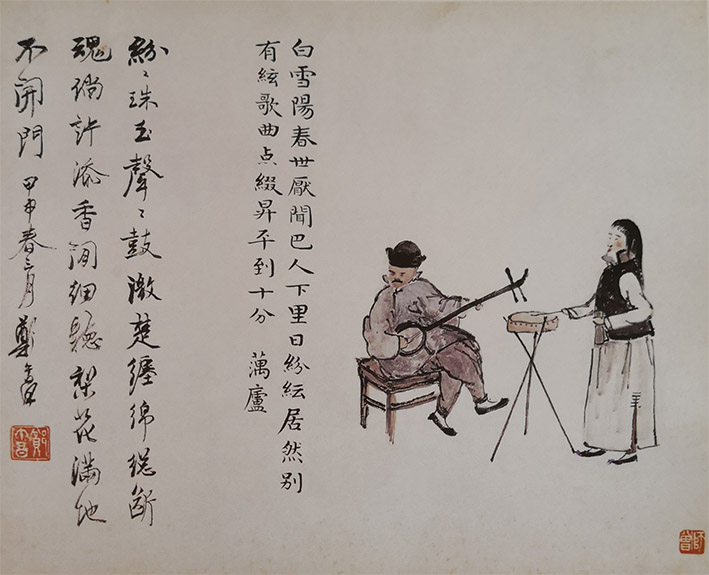 白雪陽春世厭聞巴人下里日紛紜居然別
有絃歌曲点綴昇平到十分 廬
紛〻珠玉聲〻鼓激楚纏綿總斷
魂倘許添香閒細聽梨花滿地
不開門 甲申春月 鄭
師曾